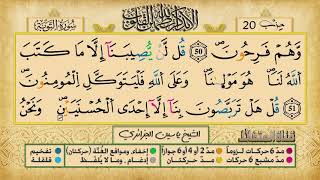 سُورَةُ التَّوْبَةِ
حزب 20
وَّهُمْ فَرِحُونَ ۝50 قُل لَّن يُصِيبَنَا إِلَّا مَا كَتَبَ
اَللَّهُ لَنَا هُوَ مَوْلَىٰنَا وَعَلَى اَللَّهِ فَلْيَتَوَكَّلِ اِلْمُومِنُونَ
۝51 قُلْ هَلْ تَرَبَّصُونَ بِنَا إِلَّا إِحْدَى اَلْحُسْنَيَيْنِ وَنَحْنُ
الشيخ ياسين الجزائري
مدّ 6 حركات لزوماً مدّ 2 أو 4 أو 6 جوازاً إخفاء، ومواقع الغُنَّة (حركتان) تفخيم
مدّ مشبع 6 حركات مدّ حركتان إدغام، وما لا يُلفَظ قلقلة